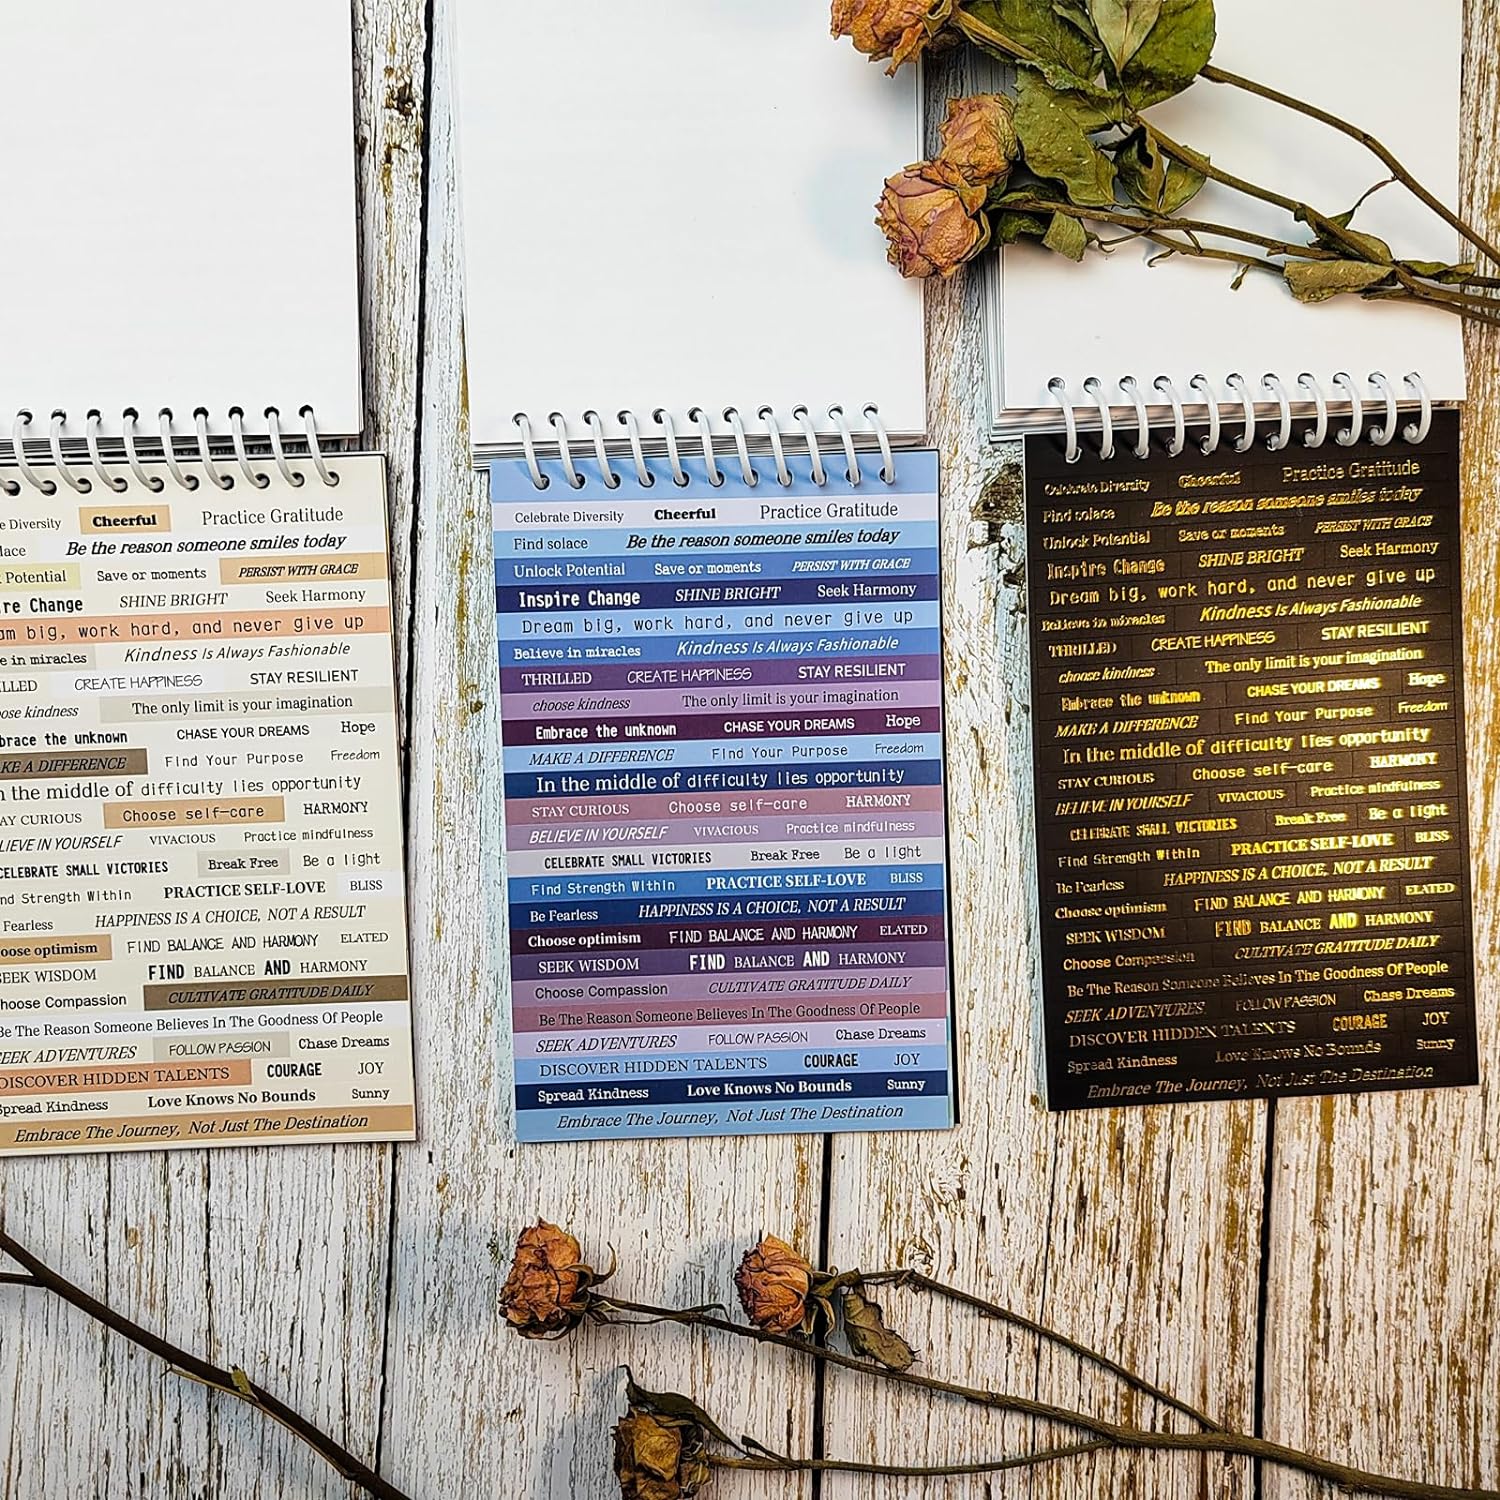 e Diversity Cheerful Practice Gratitude
lace Be the reason someone smiles today
k Potential Save or moments PERSIST WITH GRACE
re Change SHINE BRIGHT Seek Harmony
am big, work hard, and never give up
e in miracles Kindness Is Always Fashionable
LLED CREATE HAPPINESS STAY RESILIENT
ose kindness The only limit is your imagination
brace the unknown CHASE YOUR DREAMS Hope
KE A DIFFERENCE Find Your Purpose Freedom
n the middle of difficulty lies opportunity
AY CURIOUS Choose self-care HARMONY
LIEVE IN YOURSELF VIVACIOUS Practice mindfulness
CELEBRATE SMALL VICTORIES Break Free Be a light
nd Strength Within PRACTICE SELF-LOVE BLISS
Fearless HAPPINESS IS A CHOICE, NOT A RESULT
oose optimism FIND BALANCE AND HARMONY ELATED
SEEK WISDOM FIND BALANCE AND HARMONY
hoose Compassion CULTIVATE GRATITUDE DAILY
Be The Reason Someone Believes In The Goodness Of People
SEEK ADVENTURES FOLLOW PASSION Chase Dreams
DISCOVER HIDDEN TALENTS COURAGE JOY
Spread Kindness Love Knows No Bounds Sunny
Embrace The Journey, Not Just The Destination
Celebrate Diversity Cheerful Practice Gratitude
Find solace Be the reason someone smiles today
Unlock Potential Save or moments PERSIST WITH GRACE
Inspire Change SHINE BRIGHT Seek Harmony
Dream big, work hard, and never give up
Believe in miracles Kindness Is Always Fashionable
THRILLED CREATE HAPPINESS STAY RESILIENT
choose kindness The only limit is your imagination
Embrace the unknown CHASE YOUR DREAMS Hope
MAKE A DIFFERENCE Find Your Purpose Freedom
In the middle of difficulty lies opportunity
STAY CURIOUS Choose self-care HARMONY
BELIEVE IN YOURSELF VIVACIOUS Practice mindfulness
CELEBRATE SMALL VICTORIES Break Free Be a light
Find Strength Within PRACTICE SELF-LOVE BLISS
Be Fearless HAPPINESS IS A CHOICE, NOT A RESULT
Choose optimism FIND BALANCE AND HARMONY ELATED
SEEK WISDOM FIND BALANCE AND HARMONY
Choose Compassion CULTIVATE GRATITUDE DAILY
Be The Reason Someone Believes In The Goodness Of People
SEEK ADVENTURES FOLLOW PASSION Chase Dreams
DISCOVER HIDDEN TALENTS COURAGE JOY
Spread Kindness Love Knows No Bounds Sunny
Embrace The Journey, Not Just The Destination
Celebrate Diversity Cheerful Practice Gratitude
Find solace Be the reason someone smiles today
Unlock Potential Save or moments PERSIST WITH GRACE
Inspire Change SHINE BRIGHT Seek Harmony
Dream big, work hard, and never give up
Believe in miracles Kindness Is Always Fashionable
THRILLED CREATE HAPPINESS STAY RESILIENT
choose kindness The only limit is your imagination
Embrace the unknown CHASE YOUR DREAMS Hope
MAKE A DIFFERENCE Find Your Purpose Freedom
In the middle of difficulty lies opportunity
STAY CURIOUS Choose self-care HARMONY
BELIEVE IN YOURSELF VIVACIOUS Practice mindfulness
CELEBRATE SMALL VICTORIES Break Free Be a light
Find Strength Within PRACTICE SELF-LOVE BLISS
Be Fearless HAPPINESS IS A CHOICE, NOT A RESULT
Choose optimism FIND BALANCE AND HARMONY ELATED
SEEK WISDOM FIND BALANCE AND HARMONY
Choose Compassion CULTIVATE GRATITUDE DAILY
Be The Reason Someone Believes In The Goodness Of People
SEEK ADVENTURES FOLLOW PASSION Chase Dreams
DISCOVER HIDDEN TALENTS COURAGE JOY
Spread Kindness Love Knows No Bounds Sunny
Embrace The Journey, Not Just The Destination